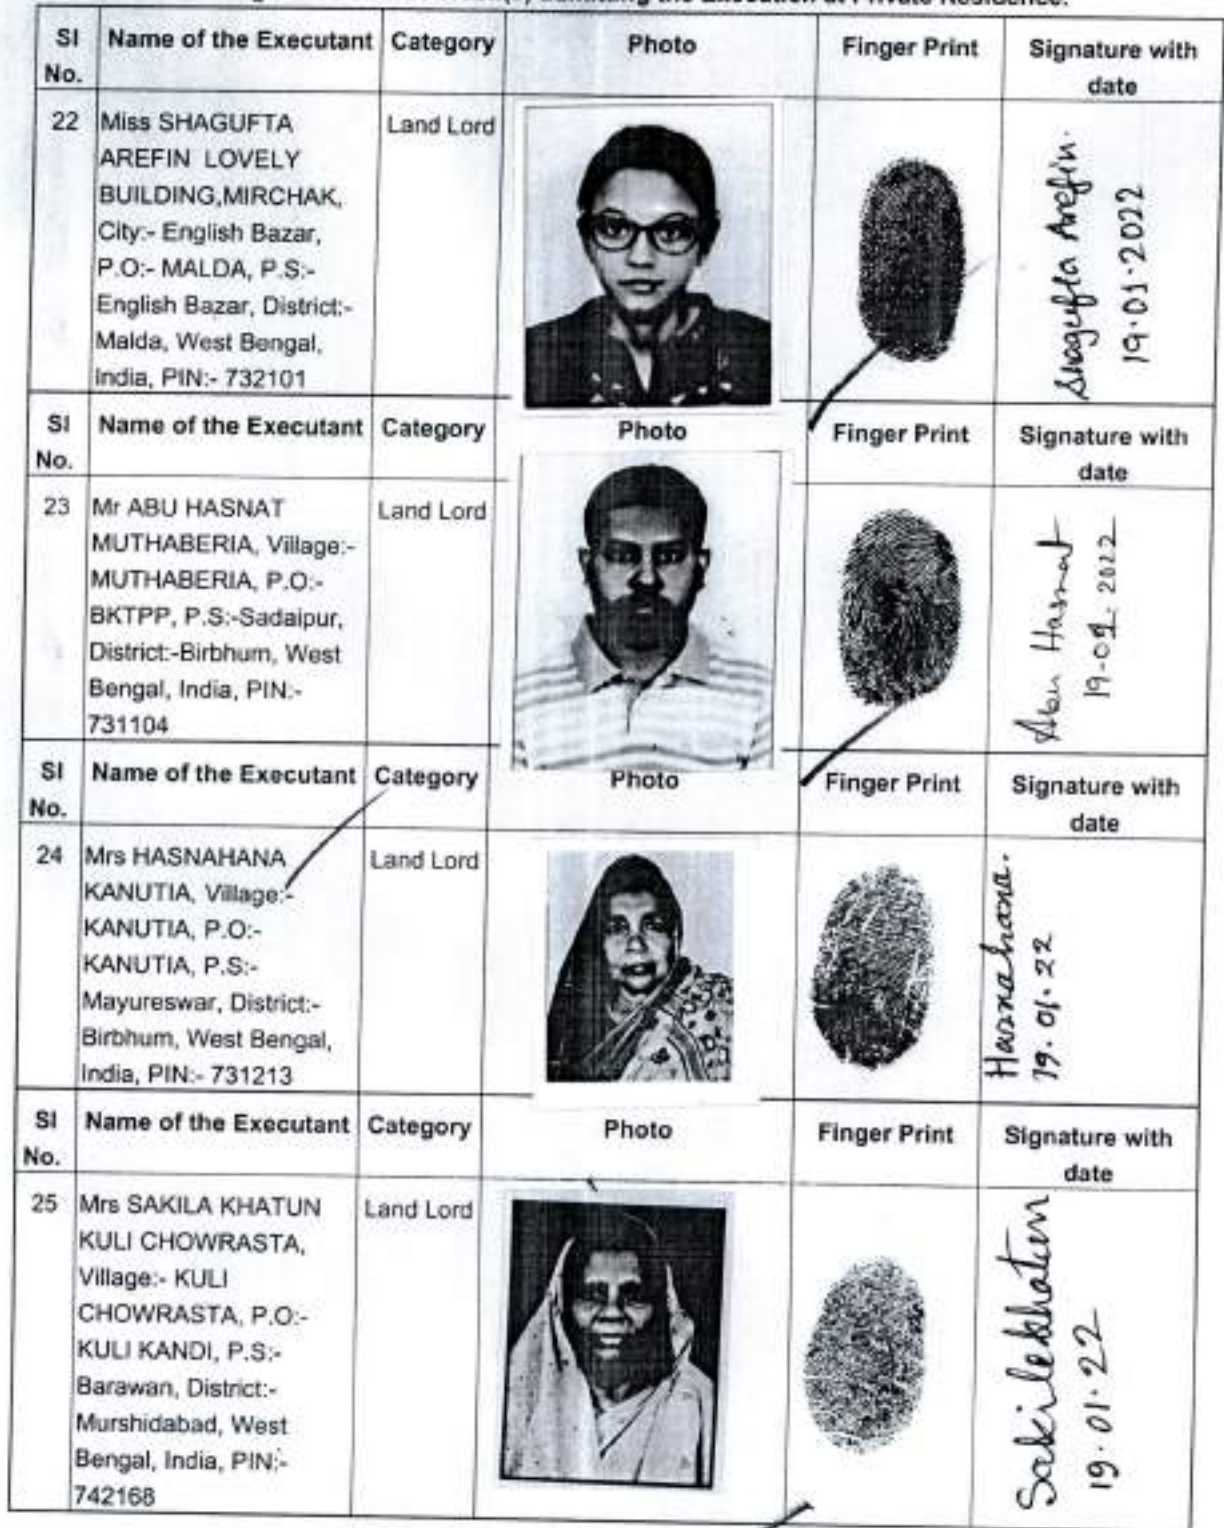 admitting the Execution at Private Residence.
Sl No. Name of the Executant Category Photo Finger Print Signature with date
22 Miss SHAGUFTA Land Lord
AREFIN LOVELY
BUILDING,MIRCHAK,
City:- English Bazar,
P.O:- MALDA, P.S:-
English Bazar, District:-
Malda, West Bengal,
India, PIN:- 732101
Shagufta Arefin.
19.01.2022
Sl No. Name of the Executant Category Photo Finger Print Signature with date
23 Mr ABU HASNAT Land Lord
MUTHABERIA, Village:-
MUTHABERIA, P.O:-
BKTPP, P.S:-Sadaipur,
District:-Birbhum, West
Bengal, India, PIN:-
731104
Abu Hasnat
19-01-2022
Sl No. Name of the Executant Category Photo Finger Print Signature with date
24 Mrs HASNAHANA Land Lord
KANUTIA, Village:-
KANUTIA, P.O:-
KANUTIA, P.S:-
Mayureswar, District:-
Birbhum, West Bengal,
India, PIN:- 731213
Hasnahana.
19.01.22
Sl No. Name of the Executant Category Photo Finger Print Signature with date
25 Mrs SAKILA KHATUN Land Lord
KULI CHOWRASTA,
Village:- KULI
CHOWRASTA, P.O:-
KULI KANDI, P.S:-
Barawan, District:-
Murshidabad, West
Bengal, India, PIN:-
742168
Sakilekhatun
19.01.22